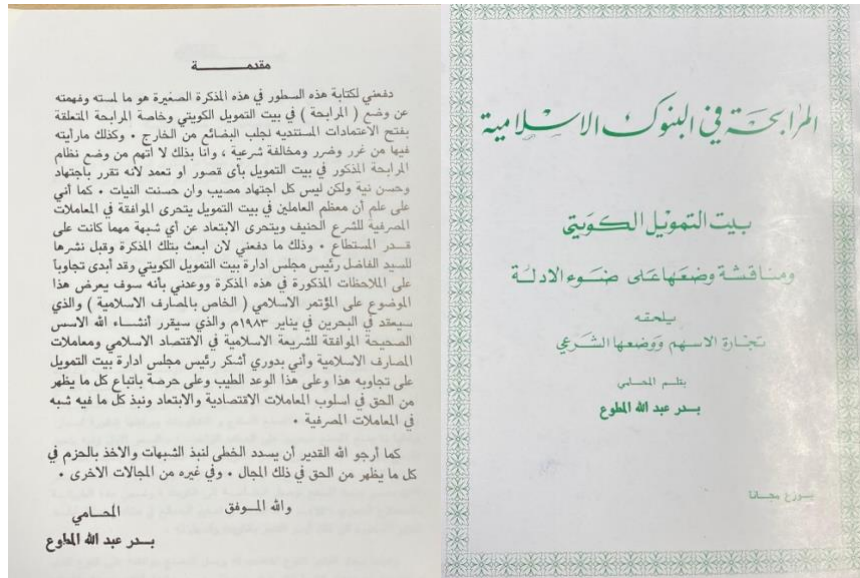 المرابحة في البنوك الاسلامية
بيت التمويل الكويتي
ومناقشة وضعها على ضوء الادلة
يلحقه
تجارة الاسهم ووضعها الشرعي
بقلم المحامي
بدر عبد الله المطوع
يوزع مجانا
مقدمة
دفعني لكتابة هذه السطور في هذه المذكرة الصغيرة هو ما لمسته وفهمته
عن وضع ( المرابحة ) في بيت التمويل الكويتي وخاصة المرابحة المتعلقة
بفتح الاعتمادات المستنديه لجلب البضائع من الخارج . وكذلك مارأيته
فيها من غرر وضرر ومخالفة شرعية ، وانا بذلك لا اتهم من وضع نظام
المرابحة المذكور في بيت التمويل بأى قصور او تعمد لانه تقرر بأجتهاد
وحسن نية ولكن ليس كل اجتهاد مصيب وان حسنت النيات . كما أني
على علم أن معظم العاملين في بيت التمويل يتحرى الموافقة في المعاملات
المصرفية للشرع الحنيف ويتحرى الابتعاد عن أي شبهة مهما كانت على
قدر المستطاع . وذلك ما دفعني لان ابعث بتلك المذكرة وقبل نشرها
للسيد الفاضل رئيس مجلس ادارة بيت التمويل الكويتي وقد أبدى تجاوباً
على الملاحظات المذكورة في هذه المذكرة ووعدني بأنه سوف يعرض هذا
الموضوع على المؤتمر الاسلامي ( الخاص بالمصارف الاسلامية ) والذي
سيعقد في البحرين في يناير ١٩٨٣م والذي سيقرر أنشاء الله الاسس
الصحيحة الموافقة للشريعة الاسلامية في الاقتصاد الاسلامي ومعاملات
المصارف الاسلامية وأني بدوري أشكر رئيس مجلس ادارة بيت التمويل
على تجاوبه هذا وعلى هذا الوعد الطيب وعلى حرصة باتباع كل ما يظهر
من الحق في اسلوب المعاملات الاقتصادية والابتعاد ونبذ كل ما فيه شبه
في المعاملات المصرفية .
كما أرجو الله القدير أن يسدد الخطى لنبذ الشبهات والاخذ بالحزم في
كل ما يظهر من الحق في ذلك المجال . وفي غيره من المجالات الاخرى .
والله الموفق
المحامي
بدر عبد الله المطوع